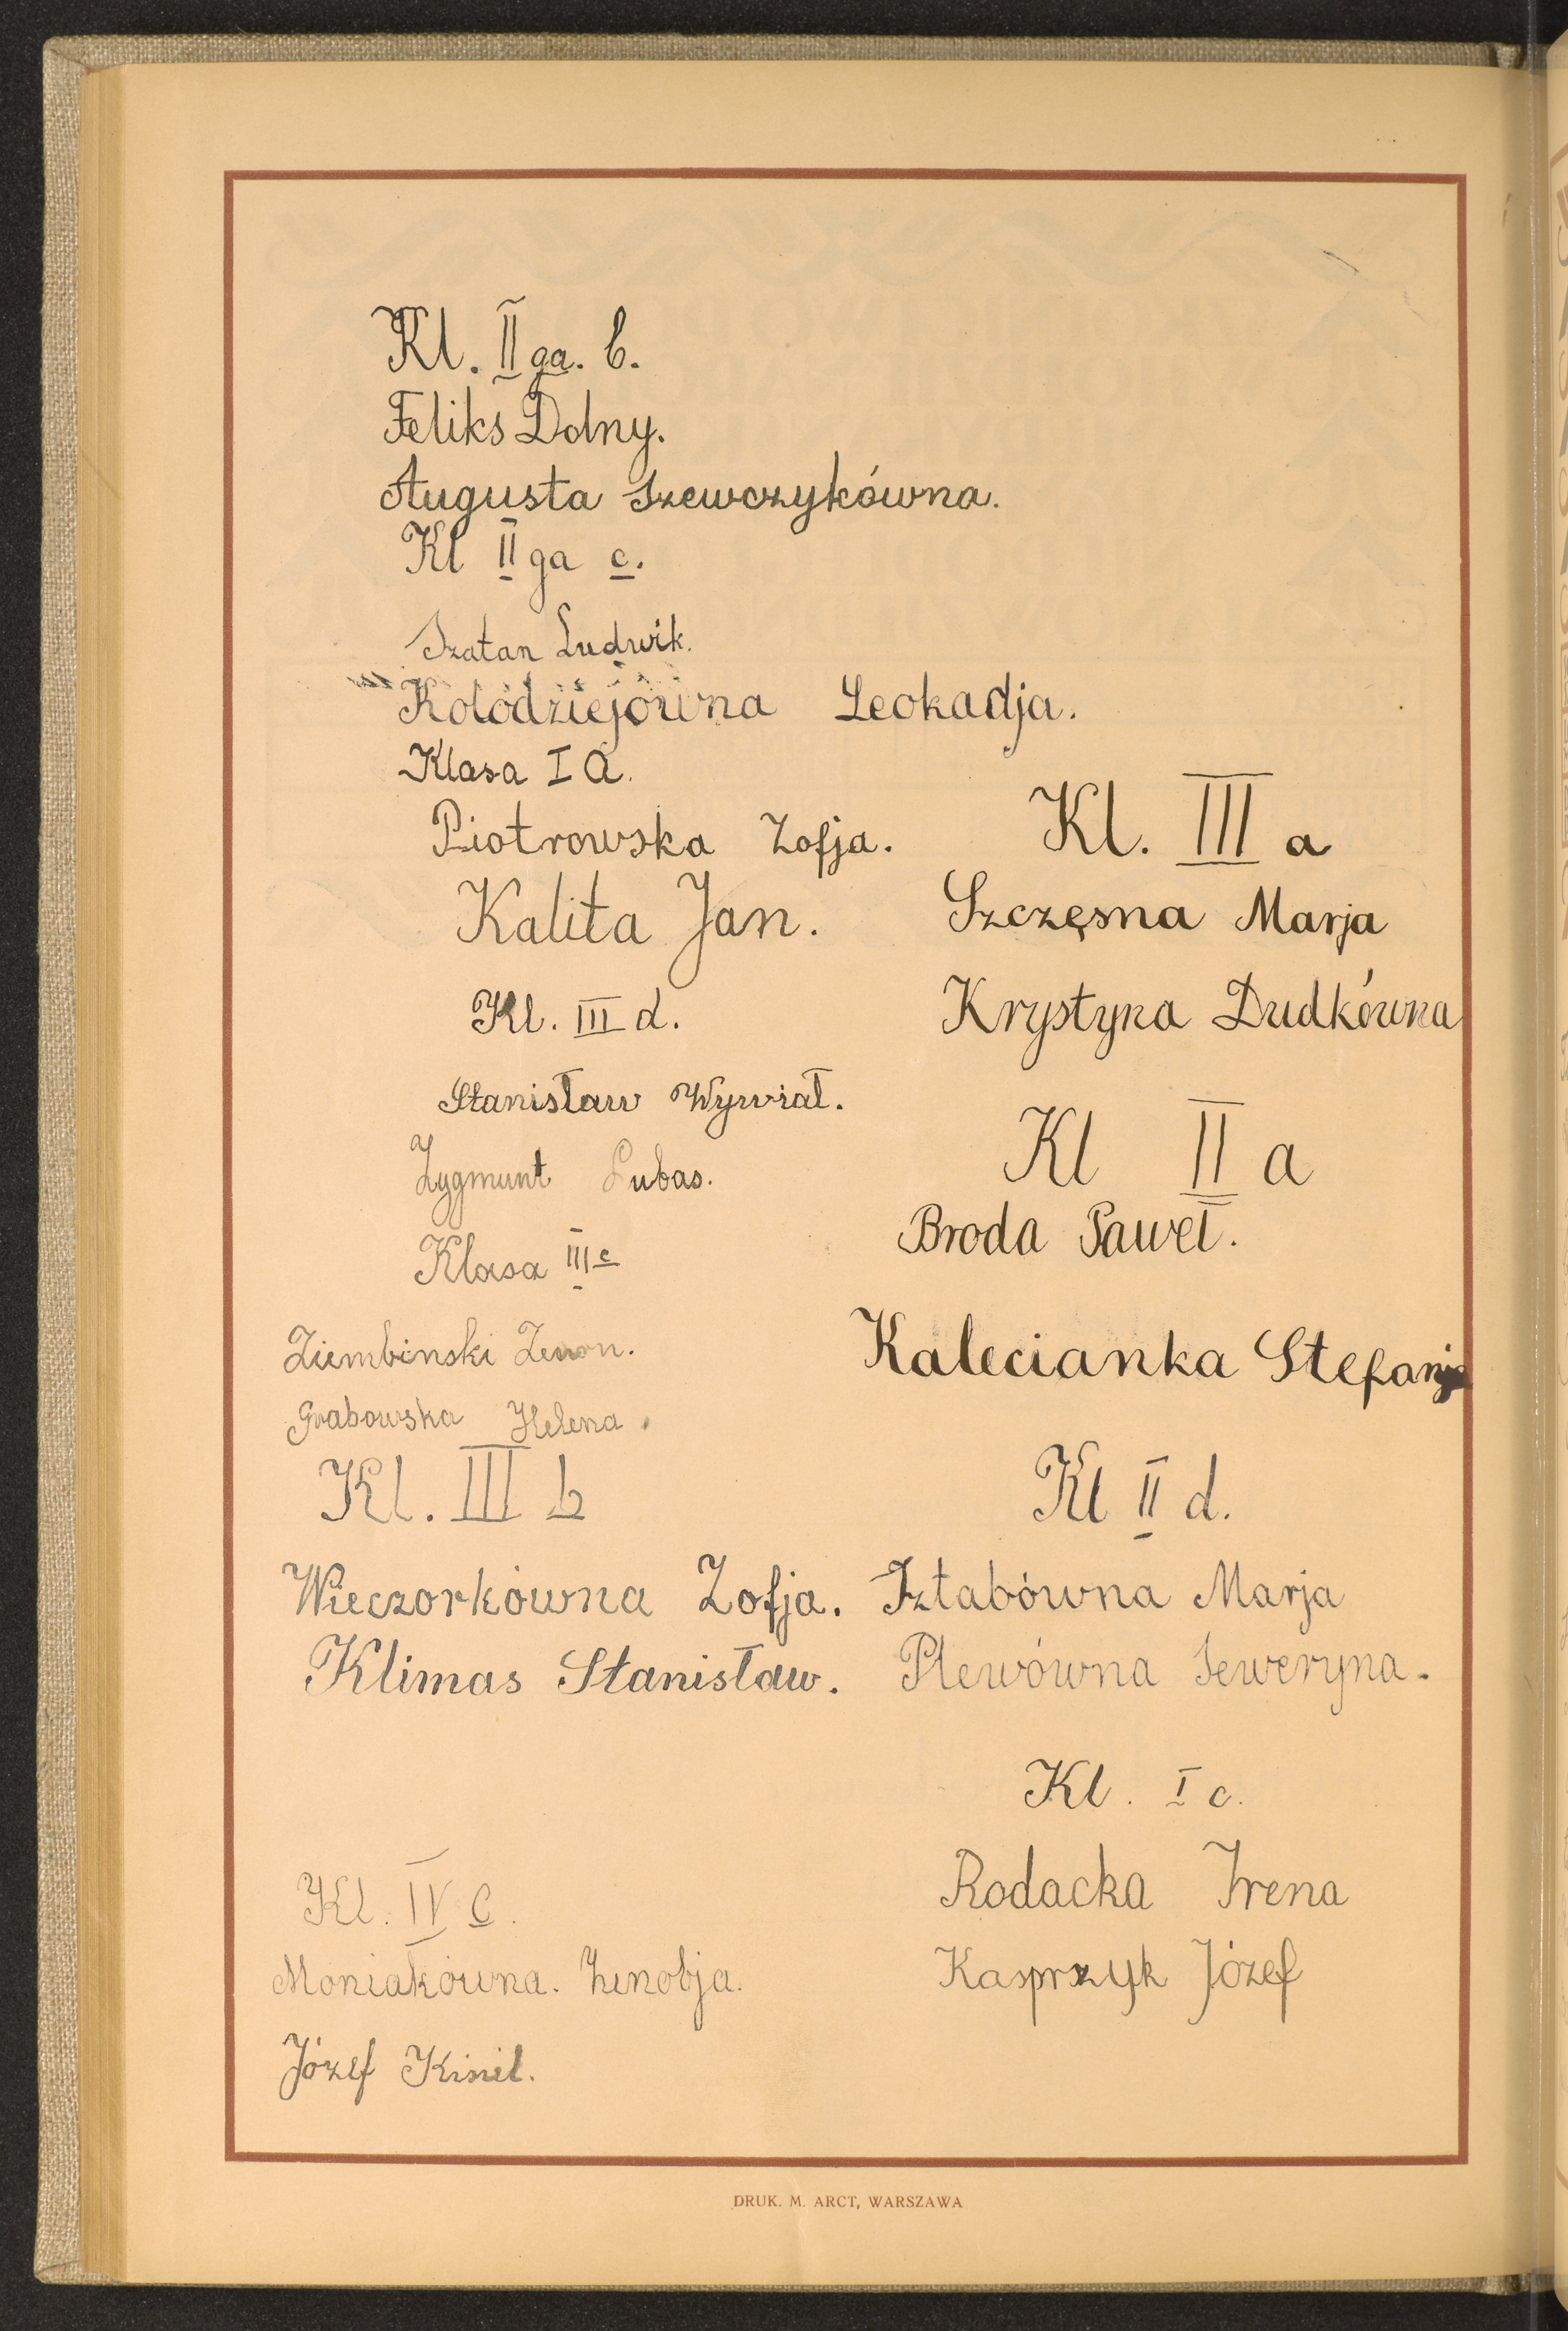 Kl. II ga. b.
Feliks Dolny.
Augusta Szewczykówna.
Kl II ga c.
Szatan Ludwik.
Kołodziejówna Leokadja.
Klasa I a.
Piotrowska Zofja.
Kalita Jan.
Kl. III d.
Stanisław Wywiał.
Zygmunt Lubas.
Klasa III c
Ziembinski Zenon.
Grabowska Helena.
Kl. III b
Wieczorkówna Zofja.
Klimas Stanisław.
Kl. IV C.
Moniakówna. Zenobja.
Józef
Kl. III a
Szczęsna Marja
Krystyna Dudkówna
Kl II a
Broda Paweł.
Kalecianka Stefanja
Kl II d.
Sztabówna Marja
Plewówna Seweryna.
Kl. I c.
Rodacka Irena
Kasprzyk Józef
DRUK. M. ARCT, WARSZAWA